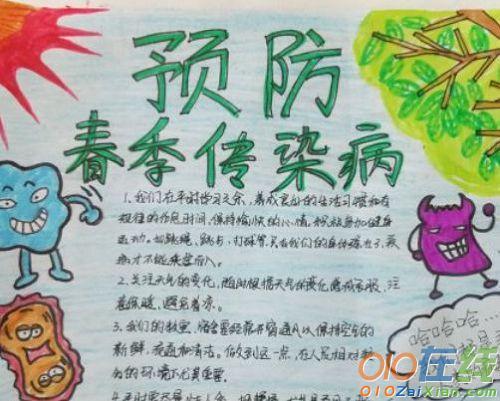 预防
春季传染病
1.我们在平时学习之余,养成良好的生活习惯和有
规律的作息时间,保持愉快的心情,积极参加健身
运动。如跳绳、跑步、打球等,只有我们的身体强壮了,疾
病才不能乘虚而入。
2.关注天气的变化,随时根据天气的变化增减衣服,注
意保暖,避免着凉。
3.我们的教室、宿舍要经常开窗通风以保持空气的
新鲜,流通和清洁。做到这一点,在人员相对
的环境下尤其重要。
哈哈哈…
010在线
010ZaiXian.com